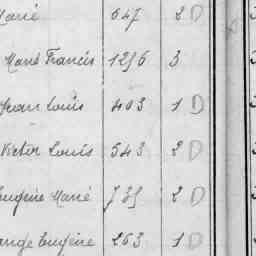 Marié 647 2 D
Marié Francis 1256 3
Jean Louis 403 1 D
Victor Louis 543 2 D
Eugène Marié 735 2 D
ange Eugène 263 1 D